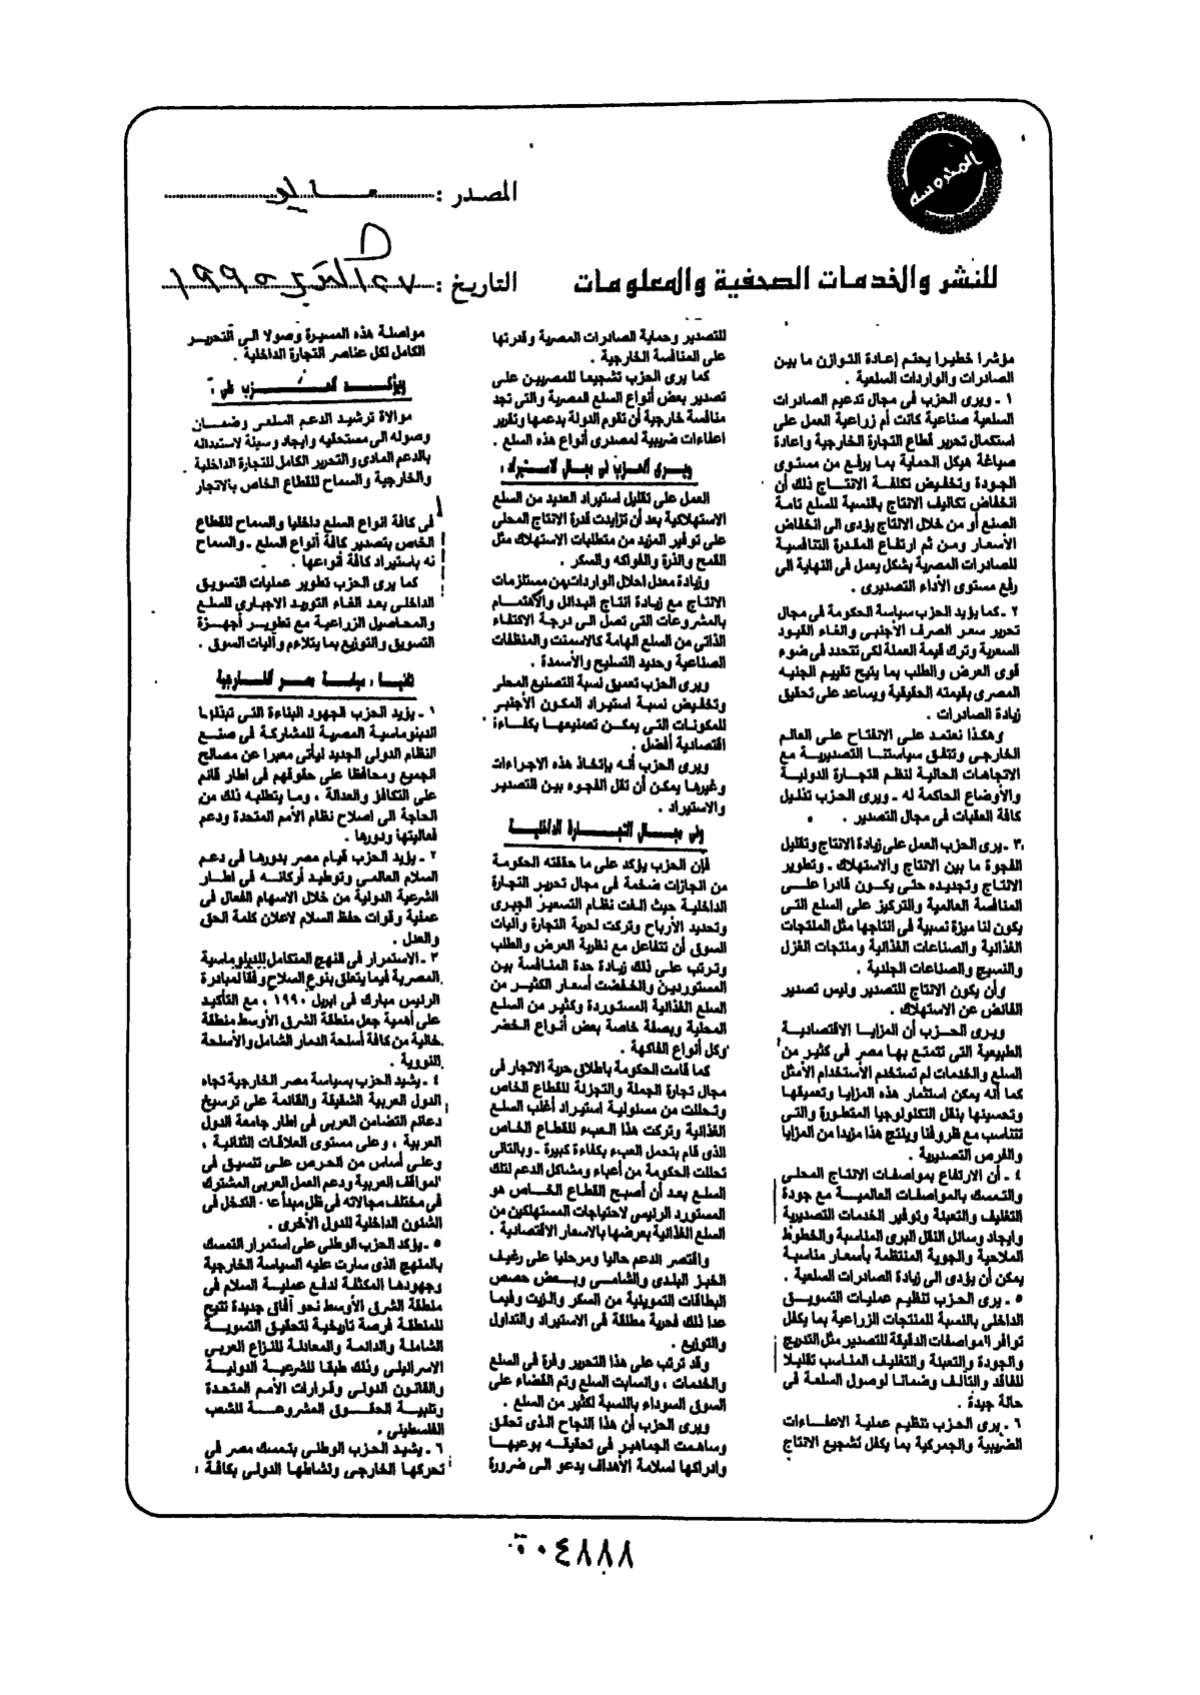 المحروسة
المصدر : مايو
للنشر والخدمات الصحفية والمعلومات
التاريخ : ١٩٩٥
مؤشرا خطيرا يحتم إعادة التوازن ما بين
الصادرات والواردات السلعية .
١ ـ ويرى الحزب فى مجال تدعيم الصادرات
السلعية صناعية كانت أم زراعية العمل على
استكمال تحرير قطاع التجارة الخارجية واعادة
صياغة هيكل الحماية بما يرفع من مستوى
الجودة وتخفيض تكلفة الانتاج ذلك أن
انخفاض تكاليف الانتاج بالنسبة للسلع تامة
الصنع أو من خلال الانتاج يؤدى الى انخفاض
الأسعار ومن ثم ارتفاع المقدرة التنافسية
للصادرات المصرية بشكل يعمل فى النهاية الى
رفع مستوى الأداء التصديرى .
٢ ـ كما يؤيد الحزب سياسة الحكومة فى مجال
تحرير سعر الصرف الأجنبى والغاء القيود
السعرية وترك قيمة العملة لكى تتحدد فى ضوء
قوى العرض والطلب بما يتيح تقييم الجنيه
المصرى بقيمته الحقيقية ويساعد على تحقيق
زيادة الصادرات .
وهكذا نعتمد على الانفتاح على العالم
الخارجى وتتفق سياستنا التصديرية مع
الاتجاهات الحالية لنظم التجارة الدولية
والأوضاع الحاكمة له ـ ويرى الحزب تذليل
كافة العقبات فى مجال التصدير .
٣ ـ يرى الحزب العمل على زيادة الانتاج وتقليل
الفجوة ما بين الانتاج والاستهلاك ـ وتطوير
الانتاج وتجديده حتى يكون قادرا على
المنافسة العالمية والتركيز على السلع التى
يكون لنا ميزة نسبية فى انتاجها مثل المنتجات
الغذائية والصناعات الغذائية ومنتجات الغزل
والنسيج والصناعات الجلدية .
وأن يكون الانتاج للتصدير وليس تصدير
الفائض عن الاستهلاك .
ويرى الحزب أن المزايا الاقتصادية
الطبيعية التى تتمتع بها مصر فى كثير من
السلع والخدمات لم تستخدم الأستخدام الأمثل
كما أنه يمكن استثمار هذه المزايا وتعميقها
وتحسينها بنقل التكنولوجيا المتطورة والتى
تتناسب مع ظروفنا وينتج هذا مزيدا من المزايا
والفرص التصديرية .
٤ ـ أن الارتفاع بمواصفات الانتاج المحلى
والتمسك بالمواصفات العالمية مع جودة
التغليف والتعبئة وتوفير الخدمات التصديرية
وايجاد وسائل النقل البرى المناسبة والخطوط
الملاحية والجوية المنتظمة بأسعار مناسبة
يمكن أن يؤدى الى زيادة الصادرات السلعية .
٥ ـ يرى الحزب تنظيم عمليات التسويق
الداخلى بالنسبة للمنتجات الزراعية بما يكفل
توافر المواصفات الدقيقة للتصدير مثل التدريج
والجودة والتعبئة والتغليف المناسب تقليلا
للفاقد والتالف وضمانا لوصول السلعة فى
حالة جيدة .
٦ ـ يرى الحزب تنظيم عملية الاعفاءات
الضريبية والجمركية بما يكفل تشجيع الانتاج
للتصدير وحماية الصادرات المصرية وقدرتها
على المنافسة الخارجية .
كما يرى الحزب تشجيعا للمصريين على
تصدير بعض أنواع السلع المصرية والتى تجد
منافسة خارجية أن تقوم الدولة بدعمها وتقرير
اعفاءات ضريبية لمصدرى أنواع هذه السلع .
ويرى الحزب فى مجال الاستيراد :
العمل على تقليل استيراد العديد من السلع
الاستهلاكية بعد أن تزايدت قدرة الانتاج المحلى
على توفير المزيد من متطلبات الاستهلاك مثل
القمح والذرة والفواكه والسكر .
وزيادة معدل احلال الواردات من مستلزمات
الانتاج مع زيادة انتاج البدائل والاهتمام
بالمشروعات التى تصل الى درجة الاكتفاء
الذاتى من السلع الهامة كالاسمنت والمنظفات
الصناعية وحديد التسليح والأسمدة .
ويرى الحزب تعميق نسبة التصنيع المحلى
وتخفيض نسبة استيراد المكون الأجنبى
للمكونات التى يمكن تصنيعها بكفاءة
اقتصادية أفضل .
ويرى الحزب أنه بإتخاذ هذه الاجراءات
وغيرها يمكن أن تقل الفجوه بين التصدير
والاستيراد .
وفى مجال التجارة الداخلية
فإن الحزب يؤكد على ما حققته الحكومة
من انجازات ضخمة فى مجال تحرير التجارة
الداخلية حيث الغت نظام التسعير الجبرى
وتحديد الأرباح وتركت لحرية التجارة وآليات
السوق أن تتفاعل مع نظرية العرض والطلب
وترتب على ذلك زيادة حدة المنافسة بين
المستوردين وانخفضت أسعار الكثير من
السلع الغذائية المستوردة وكثير من السلع
المحلية وبصفة خاصة بعض أنواع الخضر
وكل أنواع الفاكهة .
كما قامت الحكومة باطلاق حرية الاتجار فى
مجال تجارة الجملة والتجزئة للقطاع الخاص
وتخلت عن مسئولية استيراد أغلب السلع
الغذائية وتركت هذا العبء للقطاع الخاص
الذى قام بتحمل العبء بكفاءة كبيرة ـ وبالتالى
تخلت الحكومة من أعباء ومشاكل الدعم لتلك
السلع بعد أن أصبح القطاع الخاص هو
المستورد الرئيسى لاحتياجات المستهلكين من
السلع الغذائية بعرضها بالاسعار الاقتصادية .
واقتصر الدعم حاليا ومرحليا على رغيف
الخبز البلدى والشامى وبعض حصص
البطاقات التموينية من السكر والزيت وفيما
عدا ذلك فحرية مطلقة فى الاستيراد والتداول
والتوزيع .
وقد ترتب على هذا التحرير وفرة فى السلع
والخدمات ، وانسابت السلع وتم القضاء على
السوق السوداء بالنسبة لكثير من السلع .
ويرى الحزب أن هذا النجاح الذى تحقق
وساهمت الجماهير فى تحقيقه بوعيها
وادراكها لسلامة الأهداف يدعو الى ضرورة
مواصلة هذه المسيرة وصولا الى التحرير
الكامل لكل عناصر التجارة الداخلية .
ويؤكد الحزب على :
موالاة ترشيد الدعم السلعى وضمان
وصوله الى مستحقيه وايجاد وسيلة لاستبداله
بالدعم المادى والتحرير الكامل للتجارة الداخلية
والخارجية والسماح للقطاع الخاص بالاتجار
فى كافة انواع السلع داخليا والسماح للقطاع
الخاص بتصدير كافة أنواع السلع ـ والسماح
له باستيراد كافة أنواعها .
كما يرى الحزب تطوير عمليات التسويق
الداخلى بعد الغاء التوريد الاجبارى للسلع
والمحاصيل الزراعية مع تطوير أجهزة
التسويق والتوزيع بما يتلاءم وآليات السوق .
ثانيا : سياسة مصر الخارجية
١ ـ يؤيد الحزب الجهود البناءة التى تبذلها
الدبلوماسية المصرية للمشاركة فى صنع
النظام الدولى الجديد ليأتى معبرا عن مصالح
الجميع ومحافظا على حقوقهم فى اطار قائم
على التكافؤ والعدالة ، وما يتطلبه ذلك من
الحاجة الى اصلاح نظام الأمم المتحدة ودعم
فعاليتها ودورها .
٢ ـ يؤيد الحزب قيام مصر بدورها فى دعم
السلام العالمى وتوطيد أركانه فى اطار
الشرعية الدولية من خلال الاسهام الفعال فى
عملية وقوات حفظ السلام لاعلان كلمة الحق
والعدل .
٣ ـ الاستمرار فى النهج المتكامل للدبلوماسية
المصرية فيما يتعلق بنزع السلاح وفقا لمبادرة
الرئيس مبارك فى ابريل ١٩٩٠ ، مع التأكيد
على أهمية جعل منطقة الشرق الأوسط منطقة
خالية من كافة أسلحة الدمار الشامل والأسلحة
النووية .
٤ ـ يشيد الحزب بسياسة مصر الخارجية تجاه
الدول العربية الشقيقة والقائمة على ترسيخ
دعائم التضامن العربى فى اطار جامعة الدول
العربية ، وعلى مستوى العلاقات الثنائية ،
وعلى أساس من الحرص على تنسيق فى
المواقف العربية ودعم العمل العربى المشترك
فى مختلف مجالاته فى ظل مبدأ عدم التدخل فى
الشئون الداخلية للدول الأخرى .
٥ ـ يؤكد الحزب الوطنى على استمرار التمسك
بالمنهج الذى سارت عليه السياسة الخارجية
وجهودها المكثفة لدفع عملية السلام فى
منطقة الشرق الأوسط نحو آفاق جديدة تتيح
للمنطقة فرصة تاريخية لتحقيق التسوية
الشاملة والدائمة والعادلة للنزاع العربى
الاسرائيلى وذلك طبقا للشرعية الدولية
والقانون الدولى وقرارات الأمم المتحدة
وتلبية الحقوق المشروعة للشعب
الفلسطينى .
٦ ـ يشيد الحزب الوطنى بتمسك مصر فى
تحركها الخارجى ونشاطها الدولى بكافة
٠٤٨٨٨